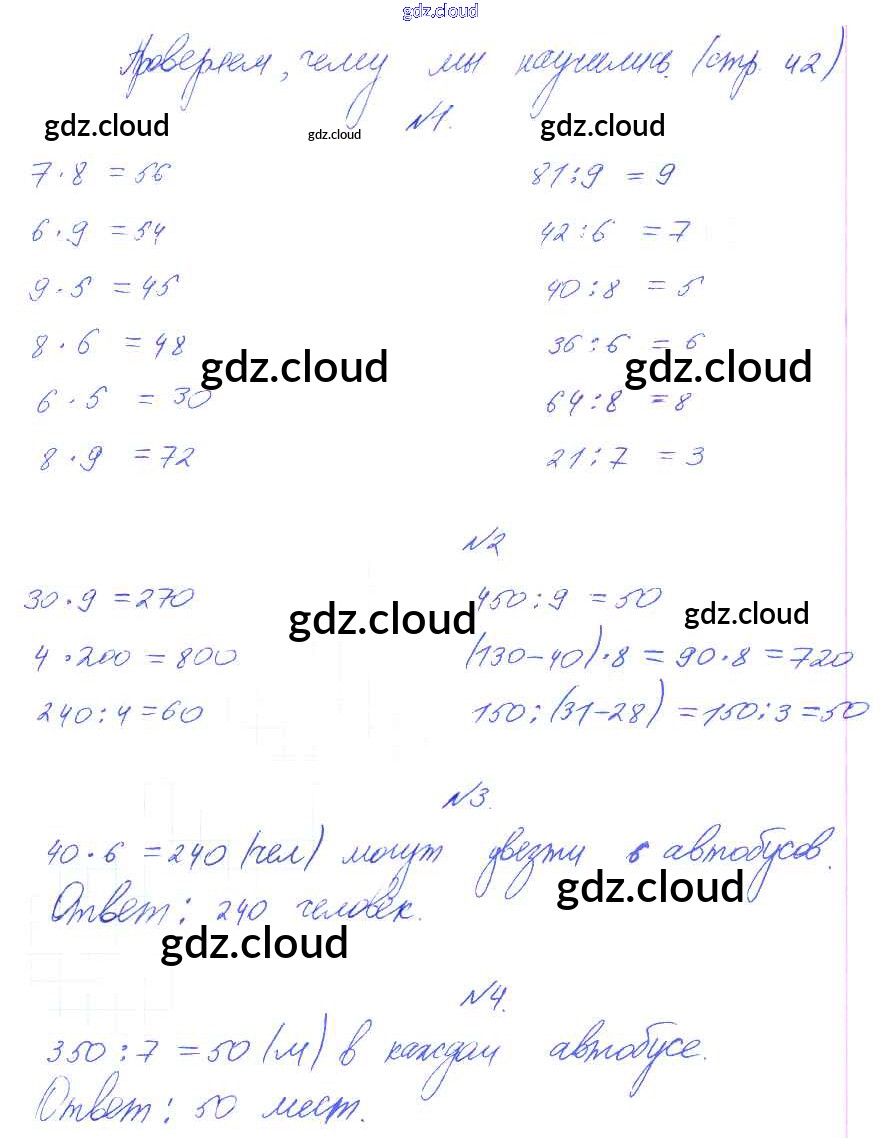 gdz.cloud
Проверяем, чему мы научились. (стр. 42)
gdz.cloud gdz.cloud №1. gdz.cloud
7·8 = 56 81:9 = 9
6·9 = 54 42:6 = 7
9·5 = 45 40:8 = 5
8·6 = 48 36:6 = 6
gdz.cloud gdz.cloud
6·5 = 30 64:8 = 8
8·9 = 72 21:7 = 3
№2
30·9 = 270 450:9 = 50
gdz.cloud gdz.cloud
4·200 = 800 (130-40)·8 = 90·8 = 720
240:4 = 60 150:(31-28) = 150:3 = 50
№3.
40·6 = 240 (чел) могут увезти 6 автобусов.
gdz.cloud
Ответ: 240 человек.
gdz.cloud
№4.
350:7 = 50 (м) в каждом автобусе.
Ответ: 50 мест.